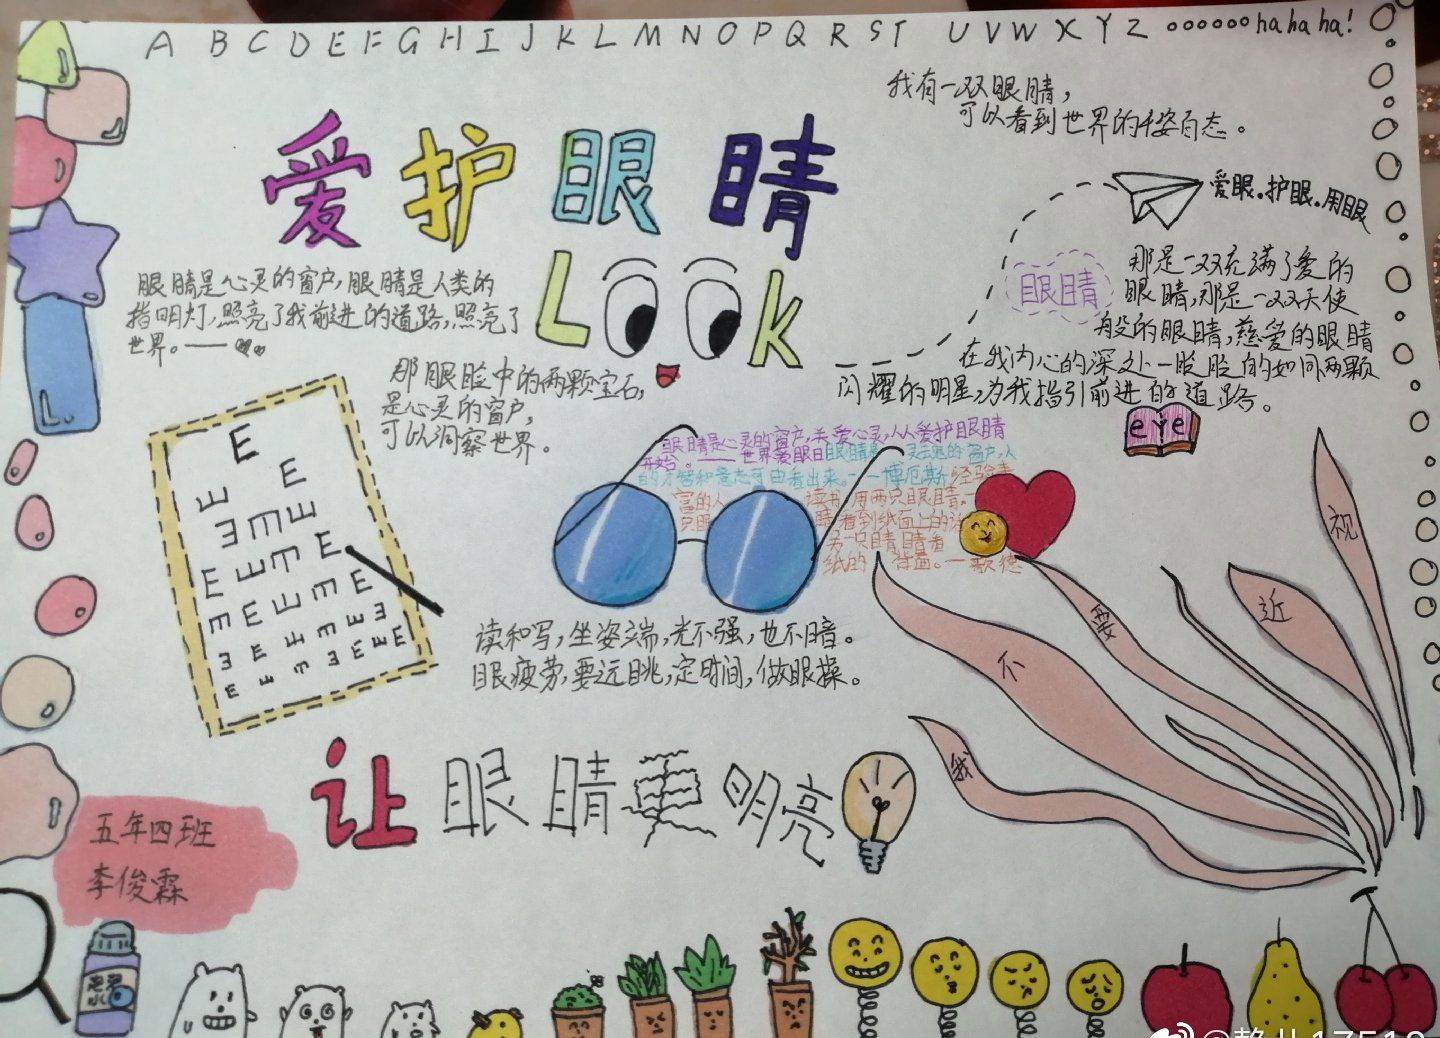 A B C D E F G H I J K L M N O P Q R S T U V W X Y Z oooooohahaha!
我有一双眼睛，
可以看到世界的千姿百态。
爱护眼睛
Look
爱眼.护眼.用眼
眼睛
那是一双充满了爱的
眼睛,那是一双天使
般的眼睛,慈爱的眼睛
在我内心的深处一眨眨的如同两颗
闪耀的明星,为我指引前进的道路。
眼睛是心灵的窗户,眼睛是人类的
指明灯.照亮了我前进的道路,照亮了
世界。——
那眼睑中的两颗宝石,
是心灵的窗户,
可以洞察世界。
eye
眼睛是心灵的窗户,关爱心灵,从爱护眼睛
开始。——世界爱眼日
的才智和意志可由看出来。——博厄斯
富的人 读书用两只眼睛
看到纸面上的
另一只眼睛看
纸的背面。—歌德
E
E E
E E E
E E E E
E E E E E
读和写,坐姿端,光不强,也不暗。
眼疲劳,要远眺,定时间,做眼操。
我
不
要
近
视
让眼睛更明亮
五年四班
李俊霖